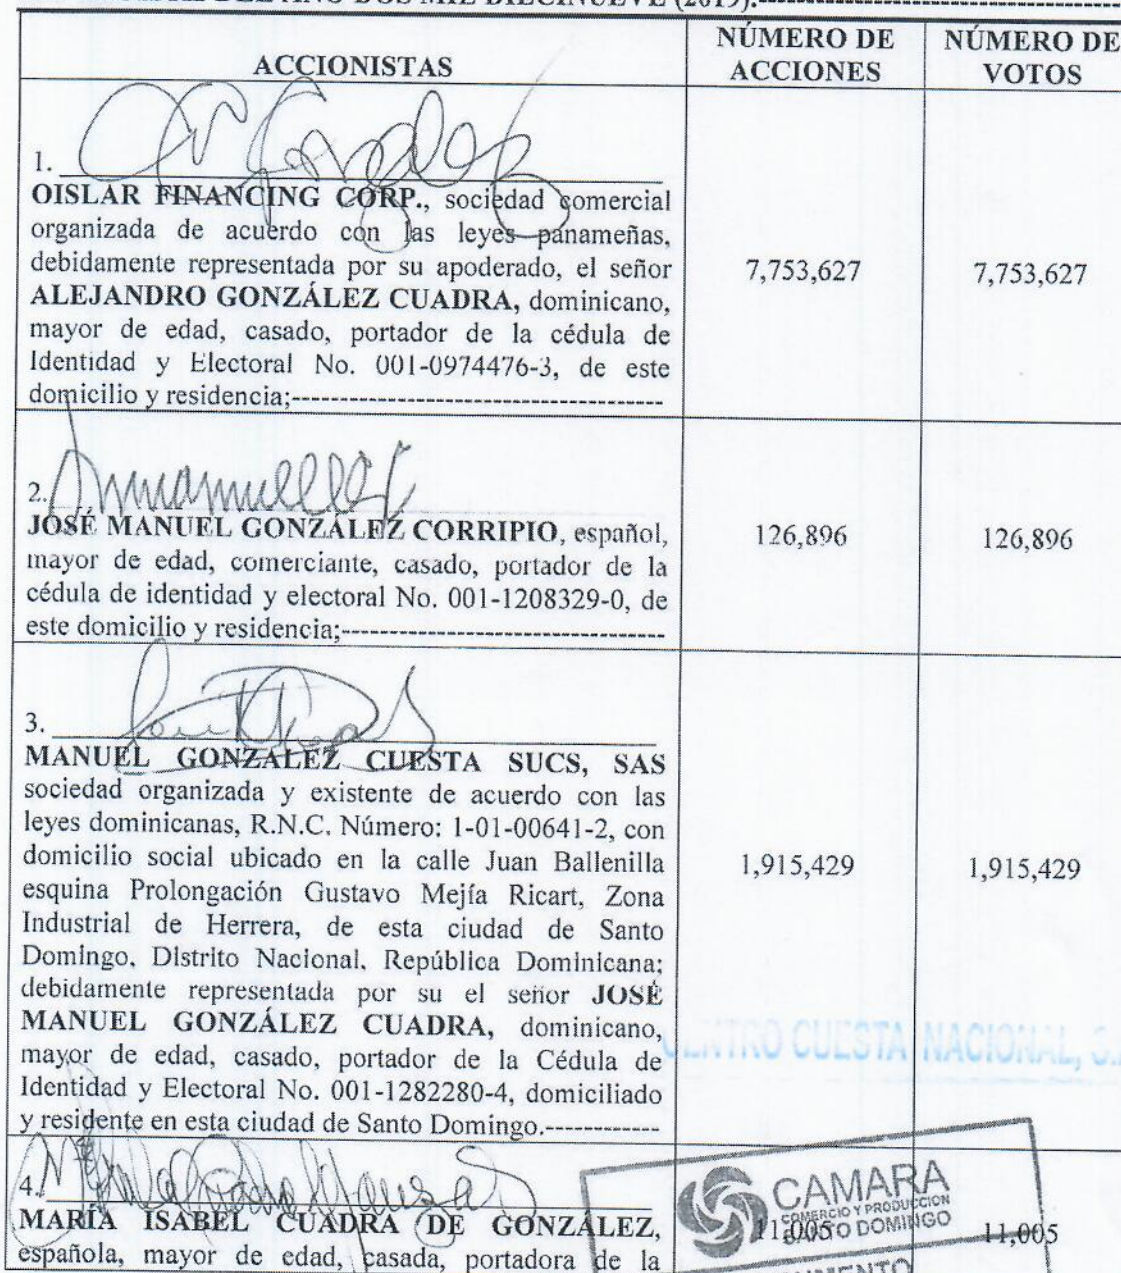 DEL AÑO DOS MIL DIECINUEVE (2019).----------------------------------------
ACCIONISTAS
NÚMERO DE
ACCIONES
NÚMERO DE
VOTOS
1.
OISLAR FINANCING CORP., sociedad comercial
organizada de acuerdo con las leyes panameñas,
debidamente representada por su apoderado, el señor
ALEJANDRO GONZÁLEZ CUADRA, dominicano,
mayor de edad, casado, portador de la cédula de
Identidad y Electoral No. 001-0974476-3, de este
domicilio y residencia;---------------------------------------
7,753,627
7,753,627
2.
JOSÉ MANUEL GONZÁLEZ CORRIPIO, español,
mayor de edad, comerciante, casado, portador de la
cédula de identidad y electoral No. 001-1208329-0, de
este domicilio y residencia;----------------------------------
126,896
126,896
3.
MANUEL GONZALEZ CUESTA SUCS, SAS
sociedad organizada y existente de acuerdo con las
leyes dominicanas, R.N.C. Número: 1-01-00641-2, con
domicilio social ubicado en la calle Juan Ballenilla
esquina Prolongación Gustavo Mejía Ricart, Zona
Industrial de Herrera, de esta ciudad de Santo
Domingo, Distrito Nacional, República Dominicana;
debidamente representada por su el señor JOSÉ
MANUEL GONZÁLEZ CUADRA, dominicano,
mayor de edad, casado, portador de la Cédula de
Identidad y Electoral No. 001-1282280-4, domiciliado
y residente en esta ciudad de Santo Domingo.------------
1,915,429
1,915,429
CENTRO CUESTA NACIONAL, S.
4.
MARÍA ISABEL CUADRA DE GONZÁLEZ,
española, mayor de edad, casada, portadora de la
11,005
11,005
CAMARA
COMERCIO Y PRODUCCION
SANTO DOMINGO